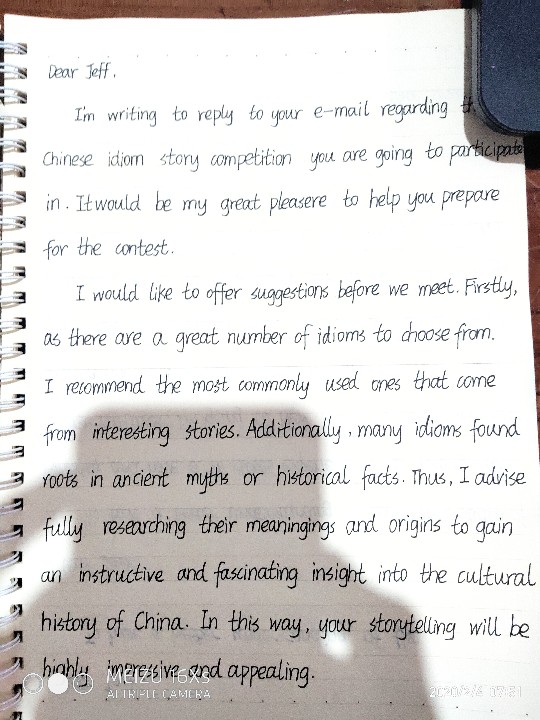 Dear Jeff.
I'm writing to reply to your e-mail regarding
Chinese idiom story competition you are going to participate
in. It would be my great pleasere to help you prepare
for the contest.
I would like to offer suggestions before we meet. Firstly,
as there are a great number of idioms to choose from.
I recommend the most commonly used ones that come
from interesting stories. Additionally, many idioms found
roots in ancient myths or historical facts. Thus, I advise
fully researching their meaningings and origins to gain
an instructive and fascinating insight into the cultural
history of China. In this way, your storytelling will be
highly impressive and appealing.
MEIZU 16Xs
AI TRIPLE CAMERA